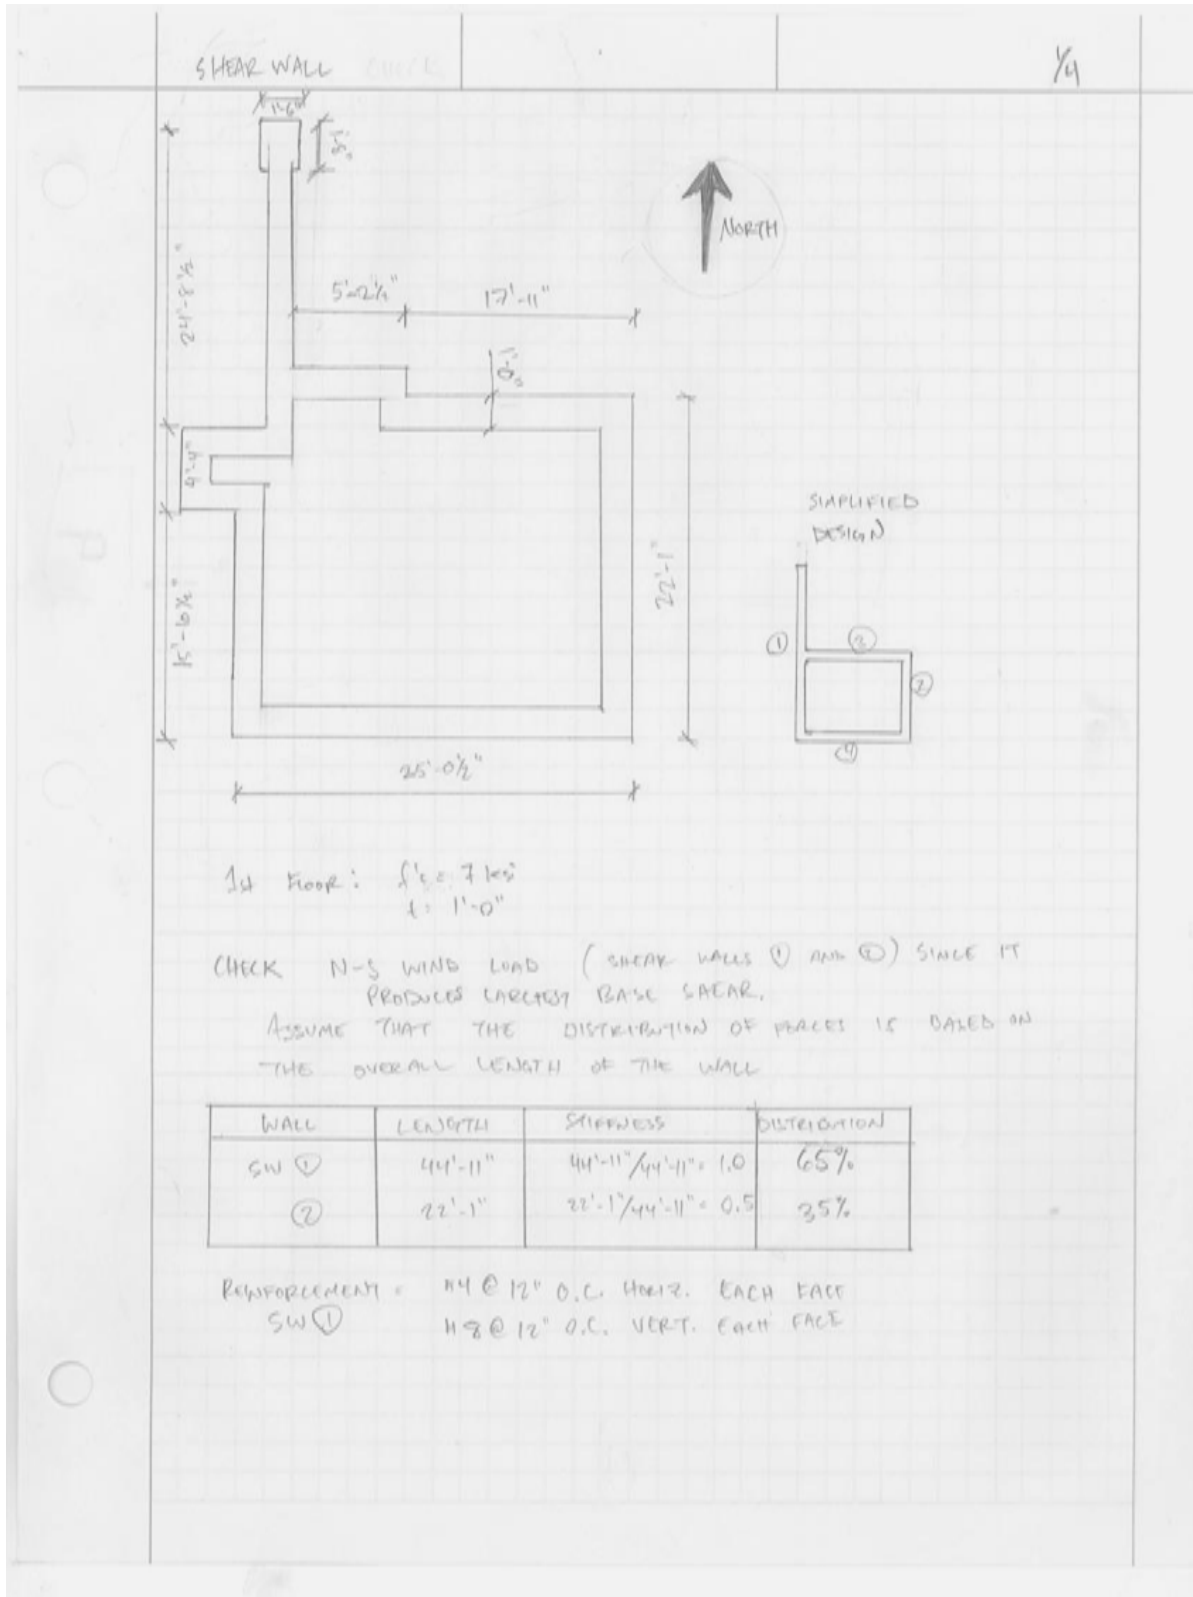 SHEAR WALL CHECK
1/4
1'-6"
24'-8½"
NORTH
5'-2½"
17'-11"
1'-0"
4'-4"
22'-1"
15'-10½"
25'-0½"
SIMPLIFIED
DESIGN
1
3
2
4
1st FLOOR: f'c = 7 ksi
t = 1'-0"
CHECK N-S WIND LOAD (SHEAR WALLS 1 AND 2) SINCE IT
PRODUCES LARGEST BASE SHEAR.
ASSUME THAT THE DISTRIBUTION OF FORCES IS BASED ON
THE OVERALL LENGTH OF THE WALL
WALL LENGTH STIFFNESS DISTRIBUTION
SW 1 44'-11" 44'-11"/44'-11" = 1.0 65%
2 22'-1" 22'-1"/44'-11" = 0.5 35%
REINFORCEMENT = #4 @ 12" O.C. HORIZ. EACH FACE
SW 1 #8 @ 12" O.C. VERT. EACH FACE